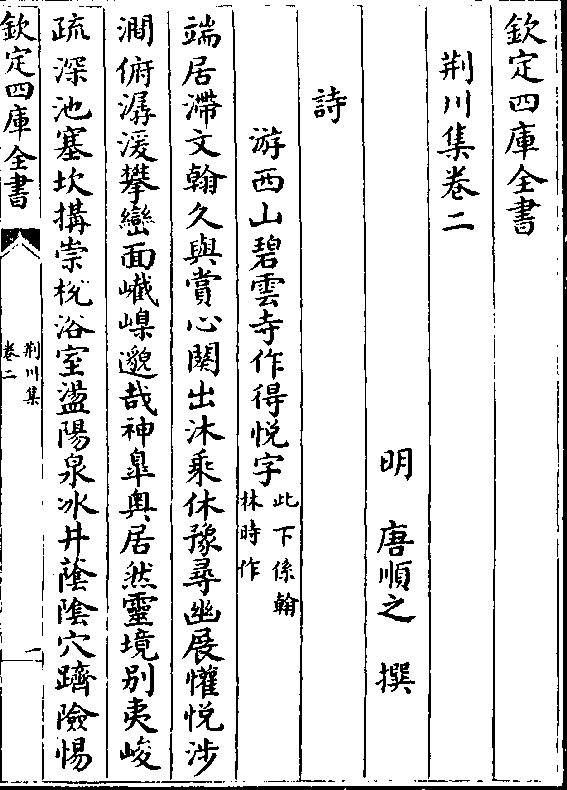 欽定四庫全書
荆川集卷二
明 唐順之 撰
詩
游西山碧雲寺作得悦字此下係翰
林時作
端居滯文翰久與賞心闋出沐乘休豫尋幽展懽悦涉
澗俯潺湲攀巒面嶻嵲邈哉神臯奥居然靈境别夷峻
疏深池塞坎搆崇梲浴室盪陽泉冰井蔭陰穴躋險惕
欽定四庫全書
荆川集
卷二
一